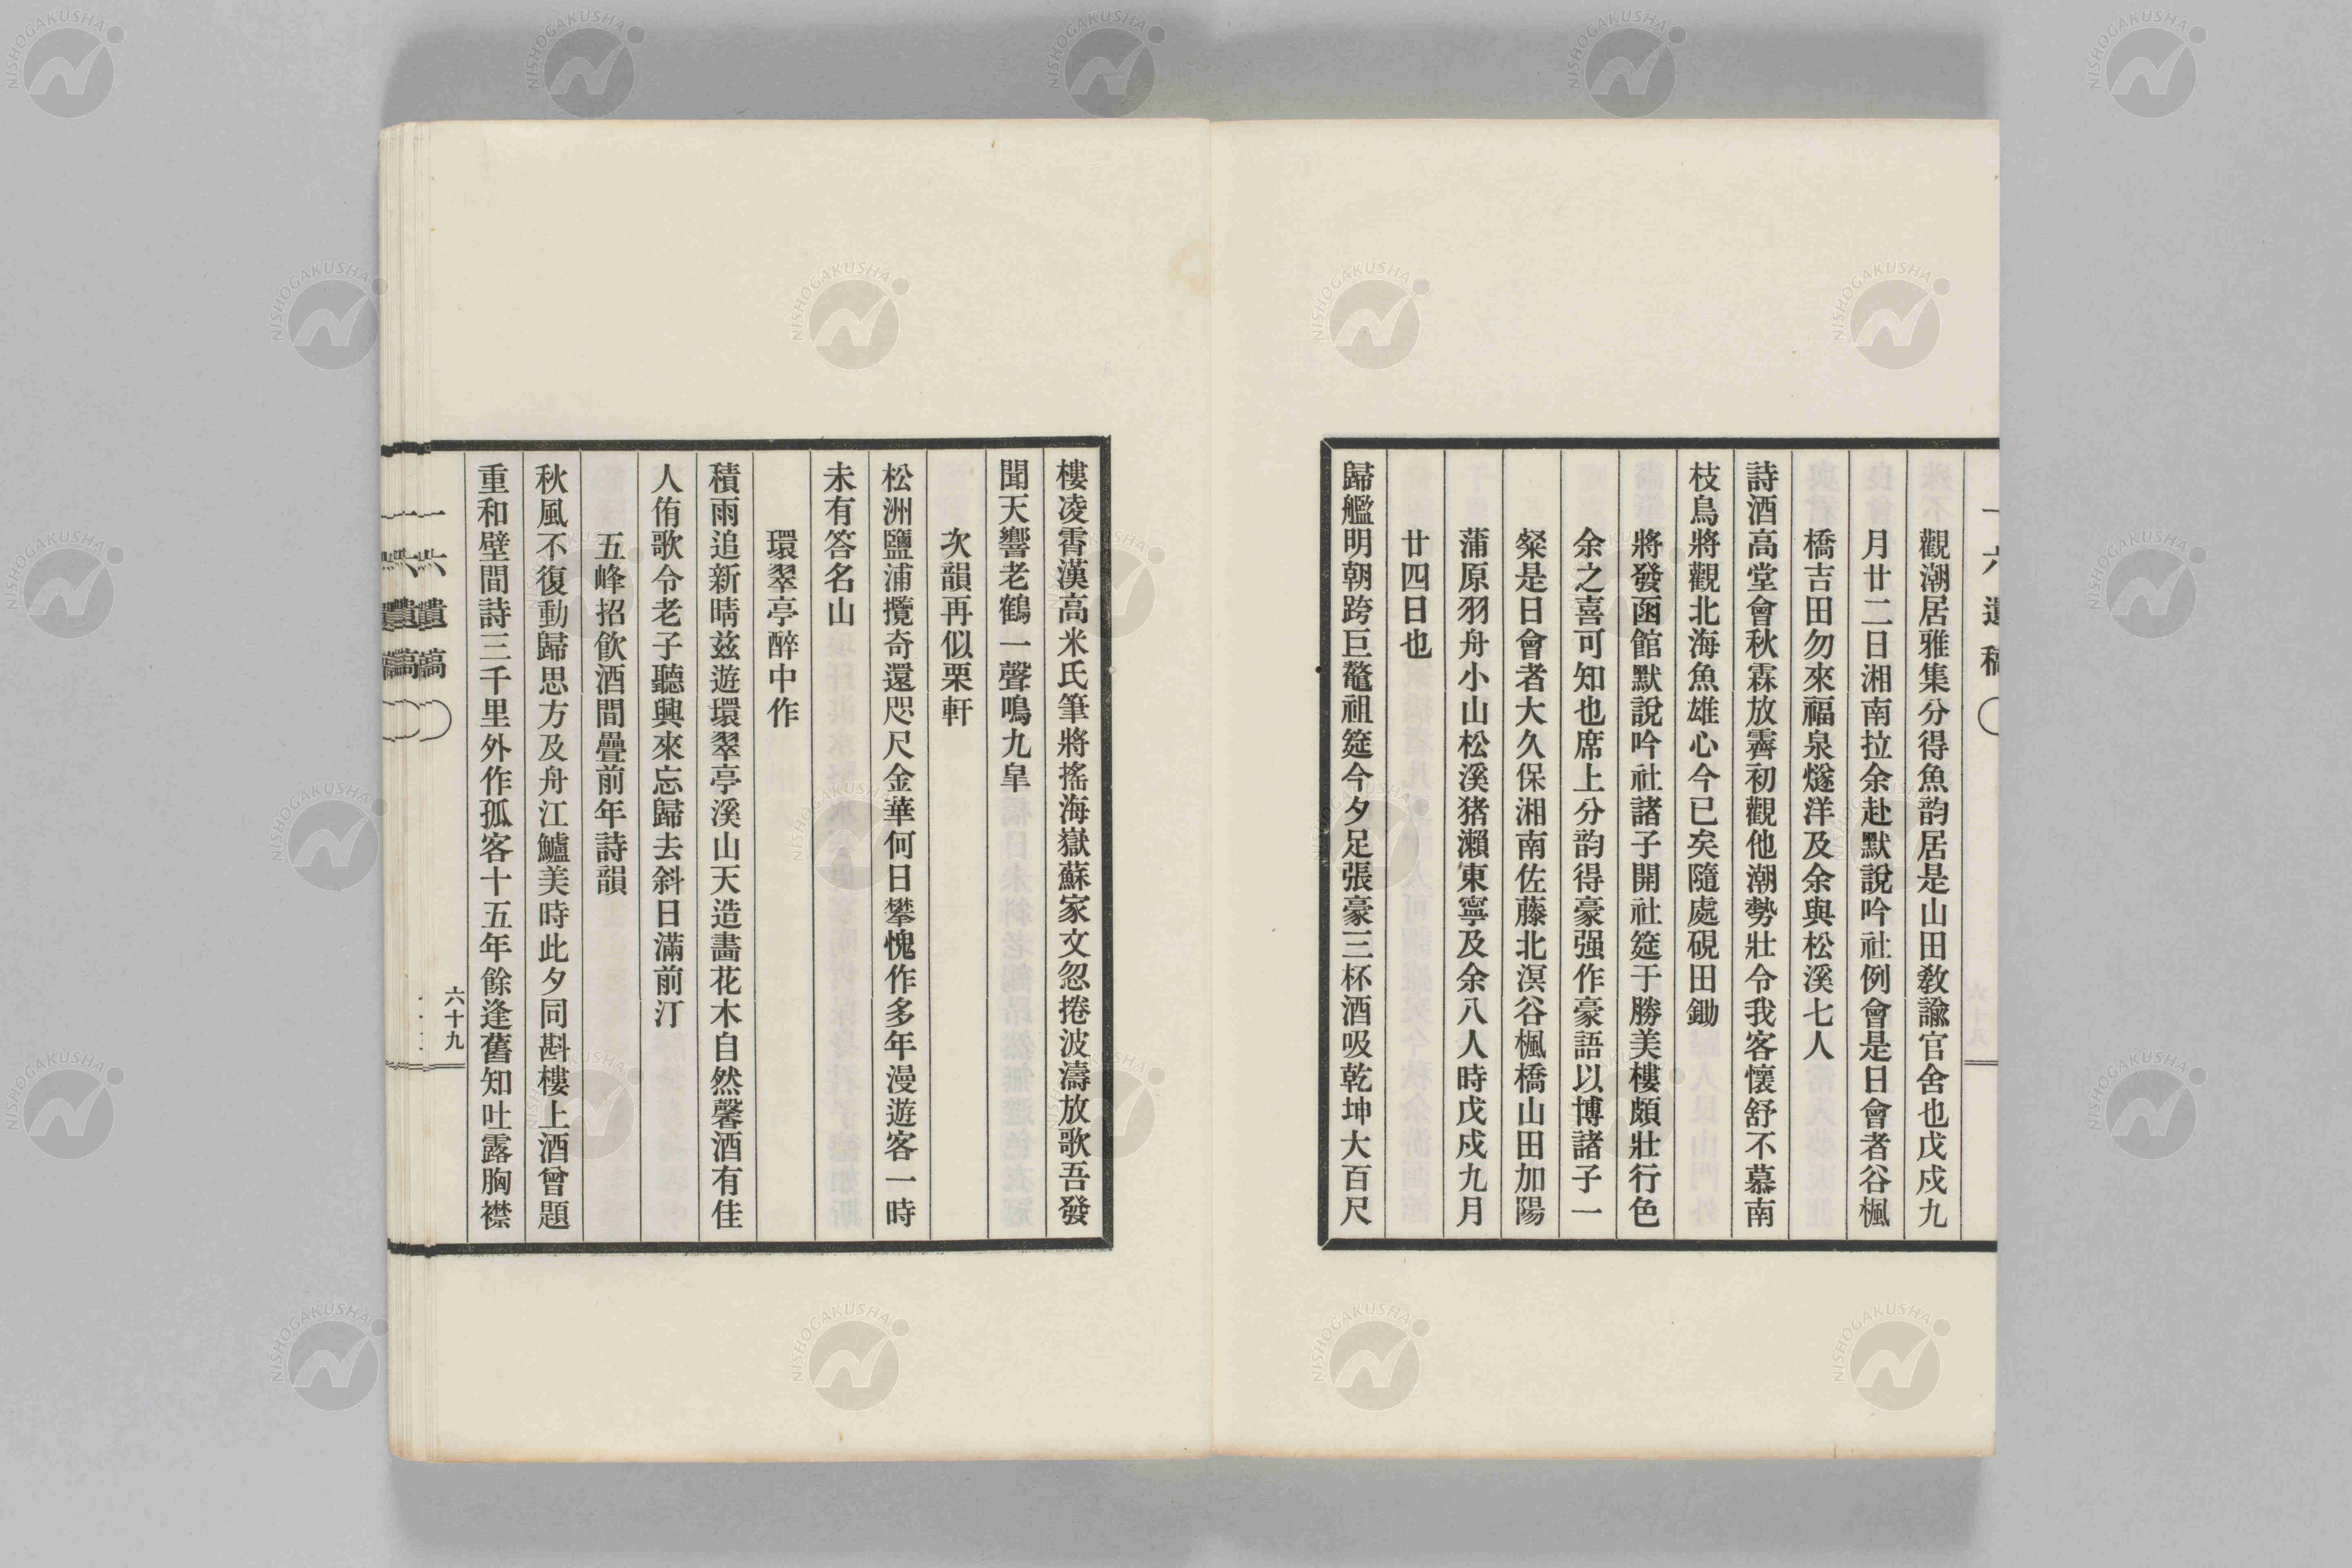 觀潮居雅集分得魚韵居是山田教諭官舍也戊戌九
月廿二日湘南拉余赴默說吟社例會是日會者谷楓
橋吉田勿來福泉燧洋及余與松溪七人
詩酒高堂會秋霖放霽初觀他潮勢壯令我客懷舒不慕南
枝鳥將觀北海魚雄心今已矣隨處硯田鋤
將發函館默說吟社諸子開社筵于勝美樓頗壯行色
余之喜可知也席上分韵得豪强作豪語以博諸子一
粲是日會者大久保湘南佐藤北溟谷楓橋山田加陽
蒲原羽舟小山松溪猪瀨東寧及余八人時戊戌九月
廿四日也
歸艦明朝跨巨鼇祖筵今夕足張豪三杯酒吸乾坤大百尺
樓凌霄漢高米氏筆將搖海嶽蘇家文忽捲波濤放歌吾發
聞天響老鶴一聲鳴九皐
次韻再似栗軒
松洲鹽浦攬奇還咫尺金華何日攀愧作多年漫遊客一時
未有答名山
環翠亭醉中作
積雨追新晴茲遊環翠亭溪山天造畫花木自然馨酒有佳
人侑歌令老子聽興來忘歸去斜日滿前汀
五峰招飮酒間疊前年詩韻
秋風不復動歸思方及舟江鱸美時此夕同斟樓上酒曾題
重和壁間詩三千里外作孤客十五年餘逢舊知吐露胸襟
一六遺稿
六十九
NISHOGAKUSHA